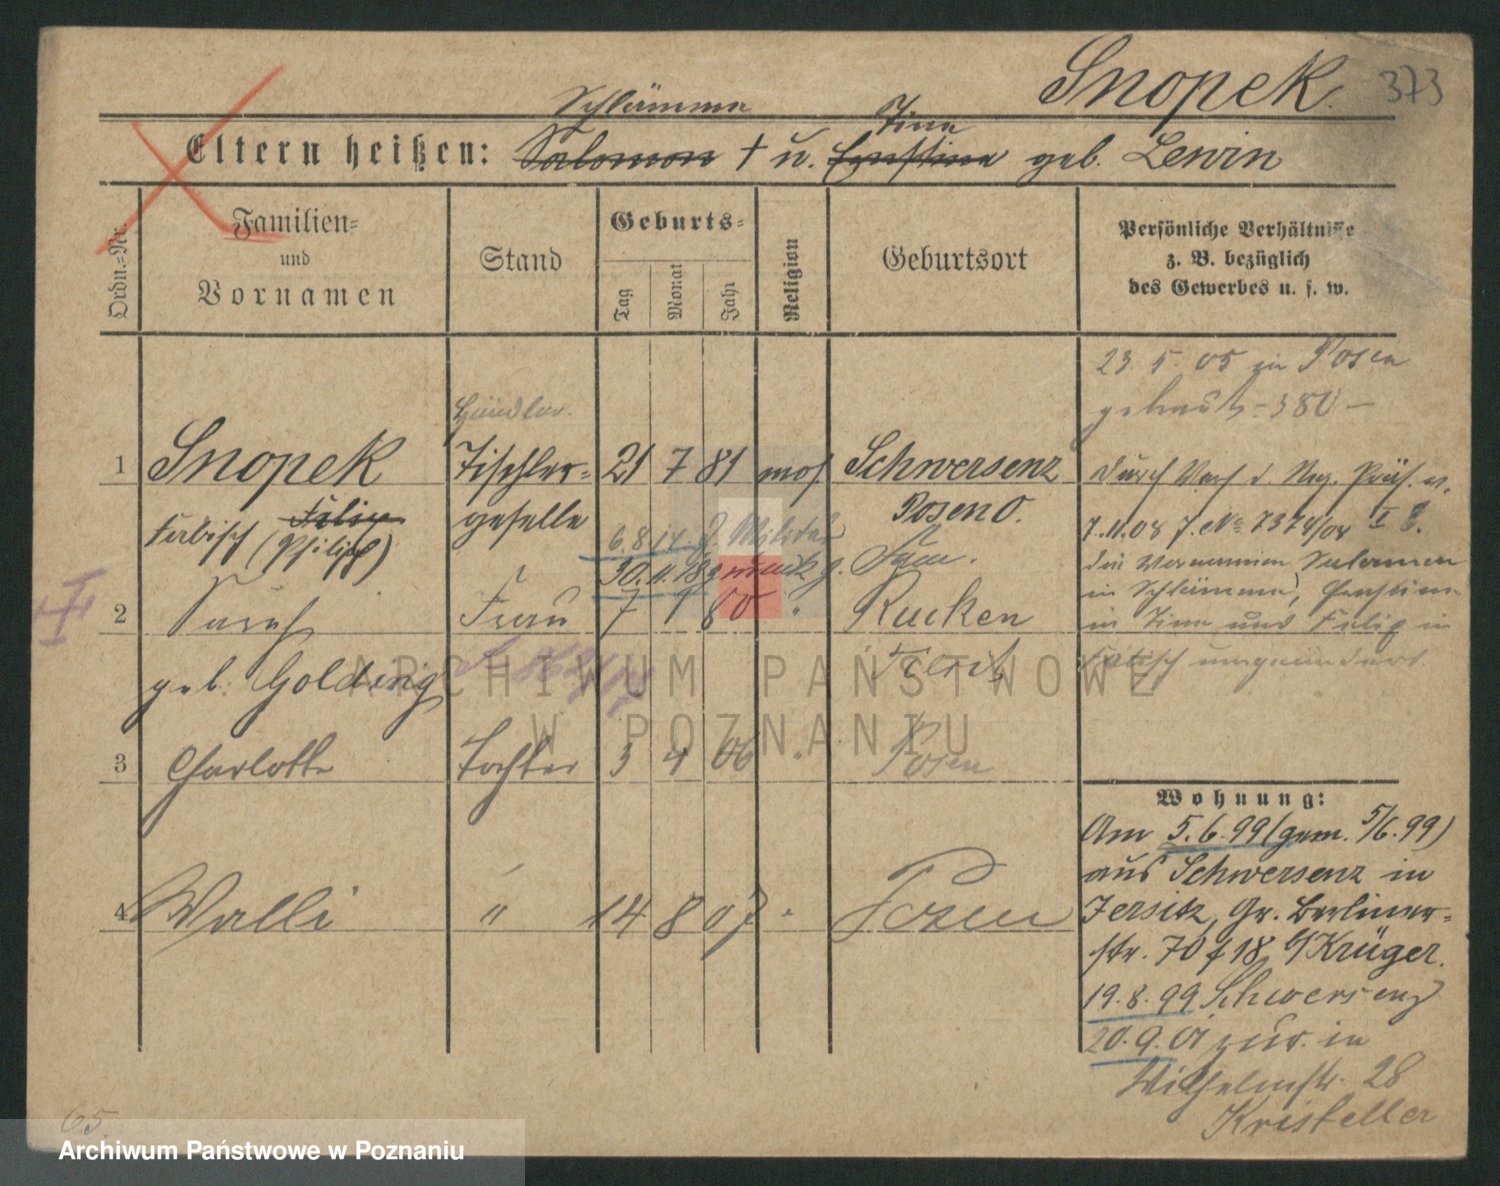 Snopek 373
Schlämme Tine
Eltern heißen: Salomon † u. Ernstine geb. Lewin
Ordn.-Nr.
Familien-
und
Vornamen
Stand
Geburts-
Tag
Monat
Jahr
Religion
Geburtsort
Persönliche Verhältnisse
z. B. bezüglich
des Gewerbes u. s. w.
23. 5. 05 in Posen
getraut - 380 -
Händler.
1 Snopek Tischler- 21 7 81 mos Schwersenz
geselle Posen O.
Filip
(Philipp)
6.8.14 z. Militär
30.11.18 zurück
durch Verf. d. Reg. Präs. v.
7.11.08 J. No 7374/08 I
die Vornamen Salomon
in Schlämme, Ernstine
in Tine und Filip in
umgeändert
2 Sarah Frau 7 1 80 " Rucken
geb. Golding
3 Charlotte Tochter 3 4 06 " Posen
4 Walli " 14 8 07 " Posen
Wohnung:
Am 5.6.99 (gem. 5/6.99)
aus Schwersenz in
Jersitz, Gr. Berliner-
str. 70 f 18 b/Krüger.
19.8.99 Schwersenz
20.9.01 zur. in
Wilhelmstr. 28
Kristeller
65.
ARCHIWUM PAŃSTWOWE
W POZNANIU
Archiwum Państwowe w Poznaniu